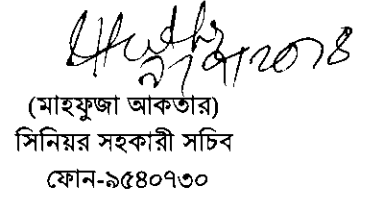 (মাহফুজা আকতার)
সিনিয়র সহকারী সচিব
ফোন-৯৫৪০৭৩০